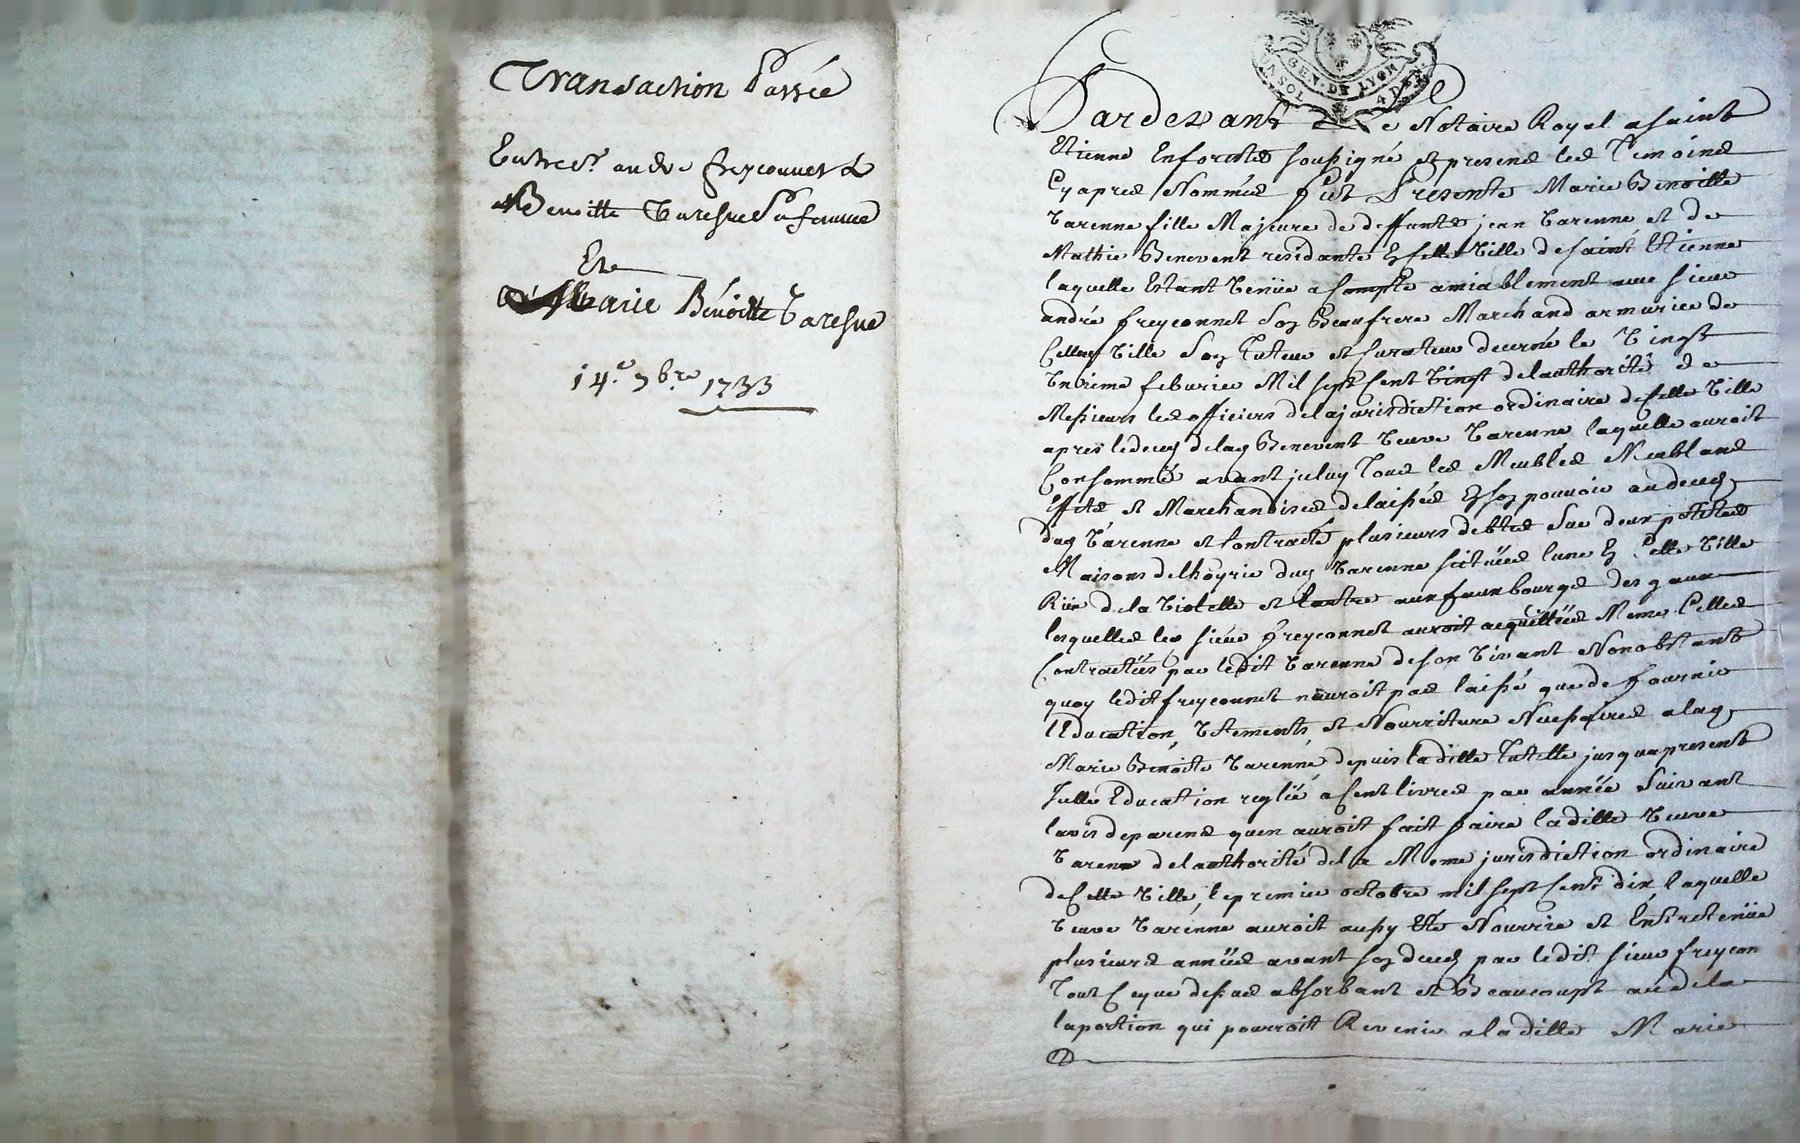 Transaction Passée
Entre Sr. andre freyconnet &
Benoitte Varesne Sa femme
Et
Marie Bénoitte Varesne
14e. 7bre 1733
GEN. DE LYON
Pardevant Le Notaire Royal a saint
Etienne En forests soussigné et presens les Temoins
Cy apres Nommés fut Presente Marie Benoitte
Varenne fille Majeure de deffunts jean Varenne et de
Mathie Benevent residante En cette Ville de saint Etienne
laquelle Estant Venüe a Compte amiablement avec sieur
andré freyconnet Son Beaufrere Marchand armurier de
Cette Ville Son Tuteur et Curateur decerné le Vingt
Unieme feburier Mil sept Cent Vingt de lauthorité de
Messieurs les officiers de la jurisdiction ordinaire de Cette Ville
apres le deces de lad Benevent Veuve Varenne laquelle auroit
Consommé avant jceluy Tous les Meubles Meublans
Effets et Marchandises delaissés En son pouvoir au deces
dud Varenne et Contracté plusieurs debtes Sur deux petites
Maisons de lhoyrie dud Varenne scituées lune En Cette Ville
Rüe de la Violette et lautre aux fauxbourgs des gaux
lesquelles les sieur freyconnet auroit acquittées Meme Celles
Contractées par ledit Varenne de son Vivant Nonobstant
quoy ledit freyconnet nauroit pas laissé que de fournir
l'Education, Vetements, et Nourriture Necessaires a lad
Marie Benoite Varenne, depuis laditte Tutelle jusqua present
Jcelle Education reglée a Cent livres par année Suivant
lavis de parens quen auroit fait faire laditte Veuve
Varenne de lauthorité de la Meme jurisdiction ordinaire
de Cette Ville, le premier octobre mil sept Cent dix laquelle
Veuve Varenne auroit aussy Eté Nourrie et Entretenüe
plusieurs années avant son deces par ledit sieur freycon
Tout Ce que dessus absorbant et Beaucoupt au dela
la portion qui pourroit Revenir a laditte Marie